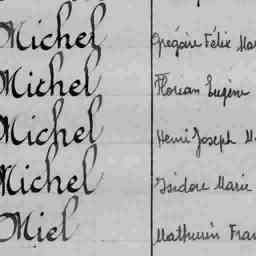 Michel Grégoire Félix Mar
Michel Florian Eugène
Michel Henri Joseph M
Michel Isidore Marie
Miel Mathurin Fran